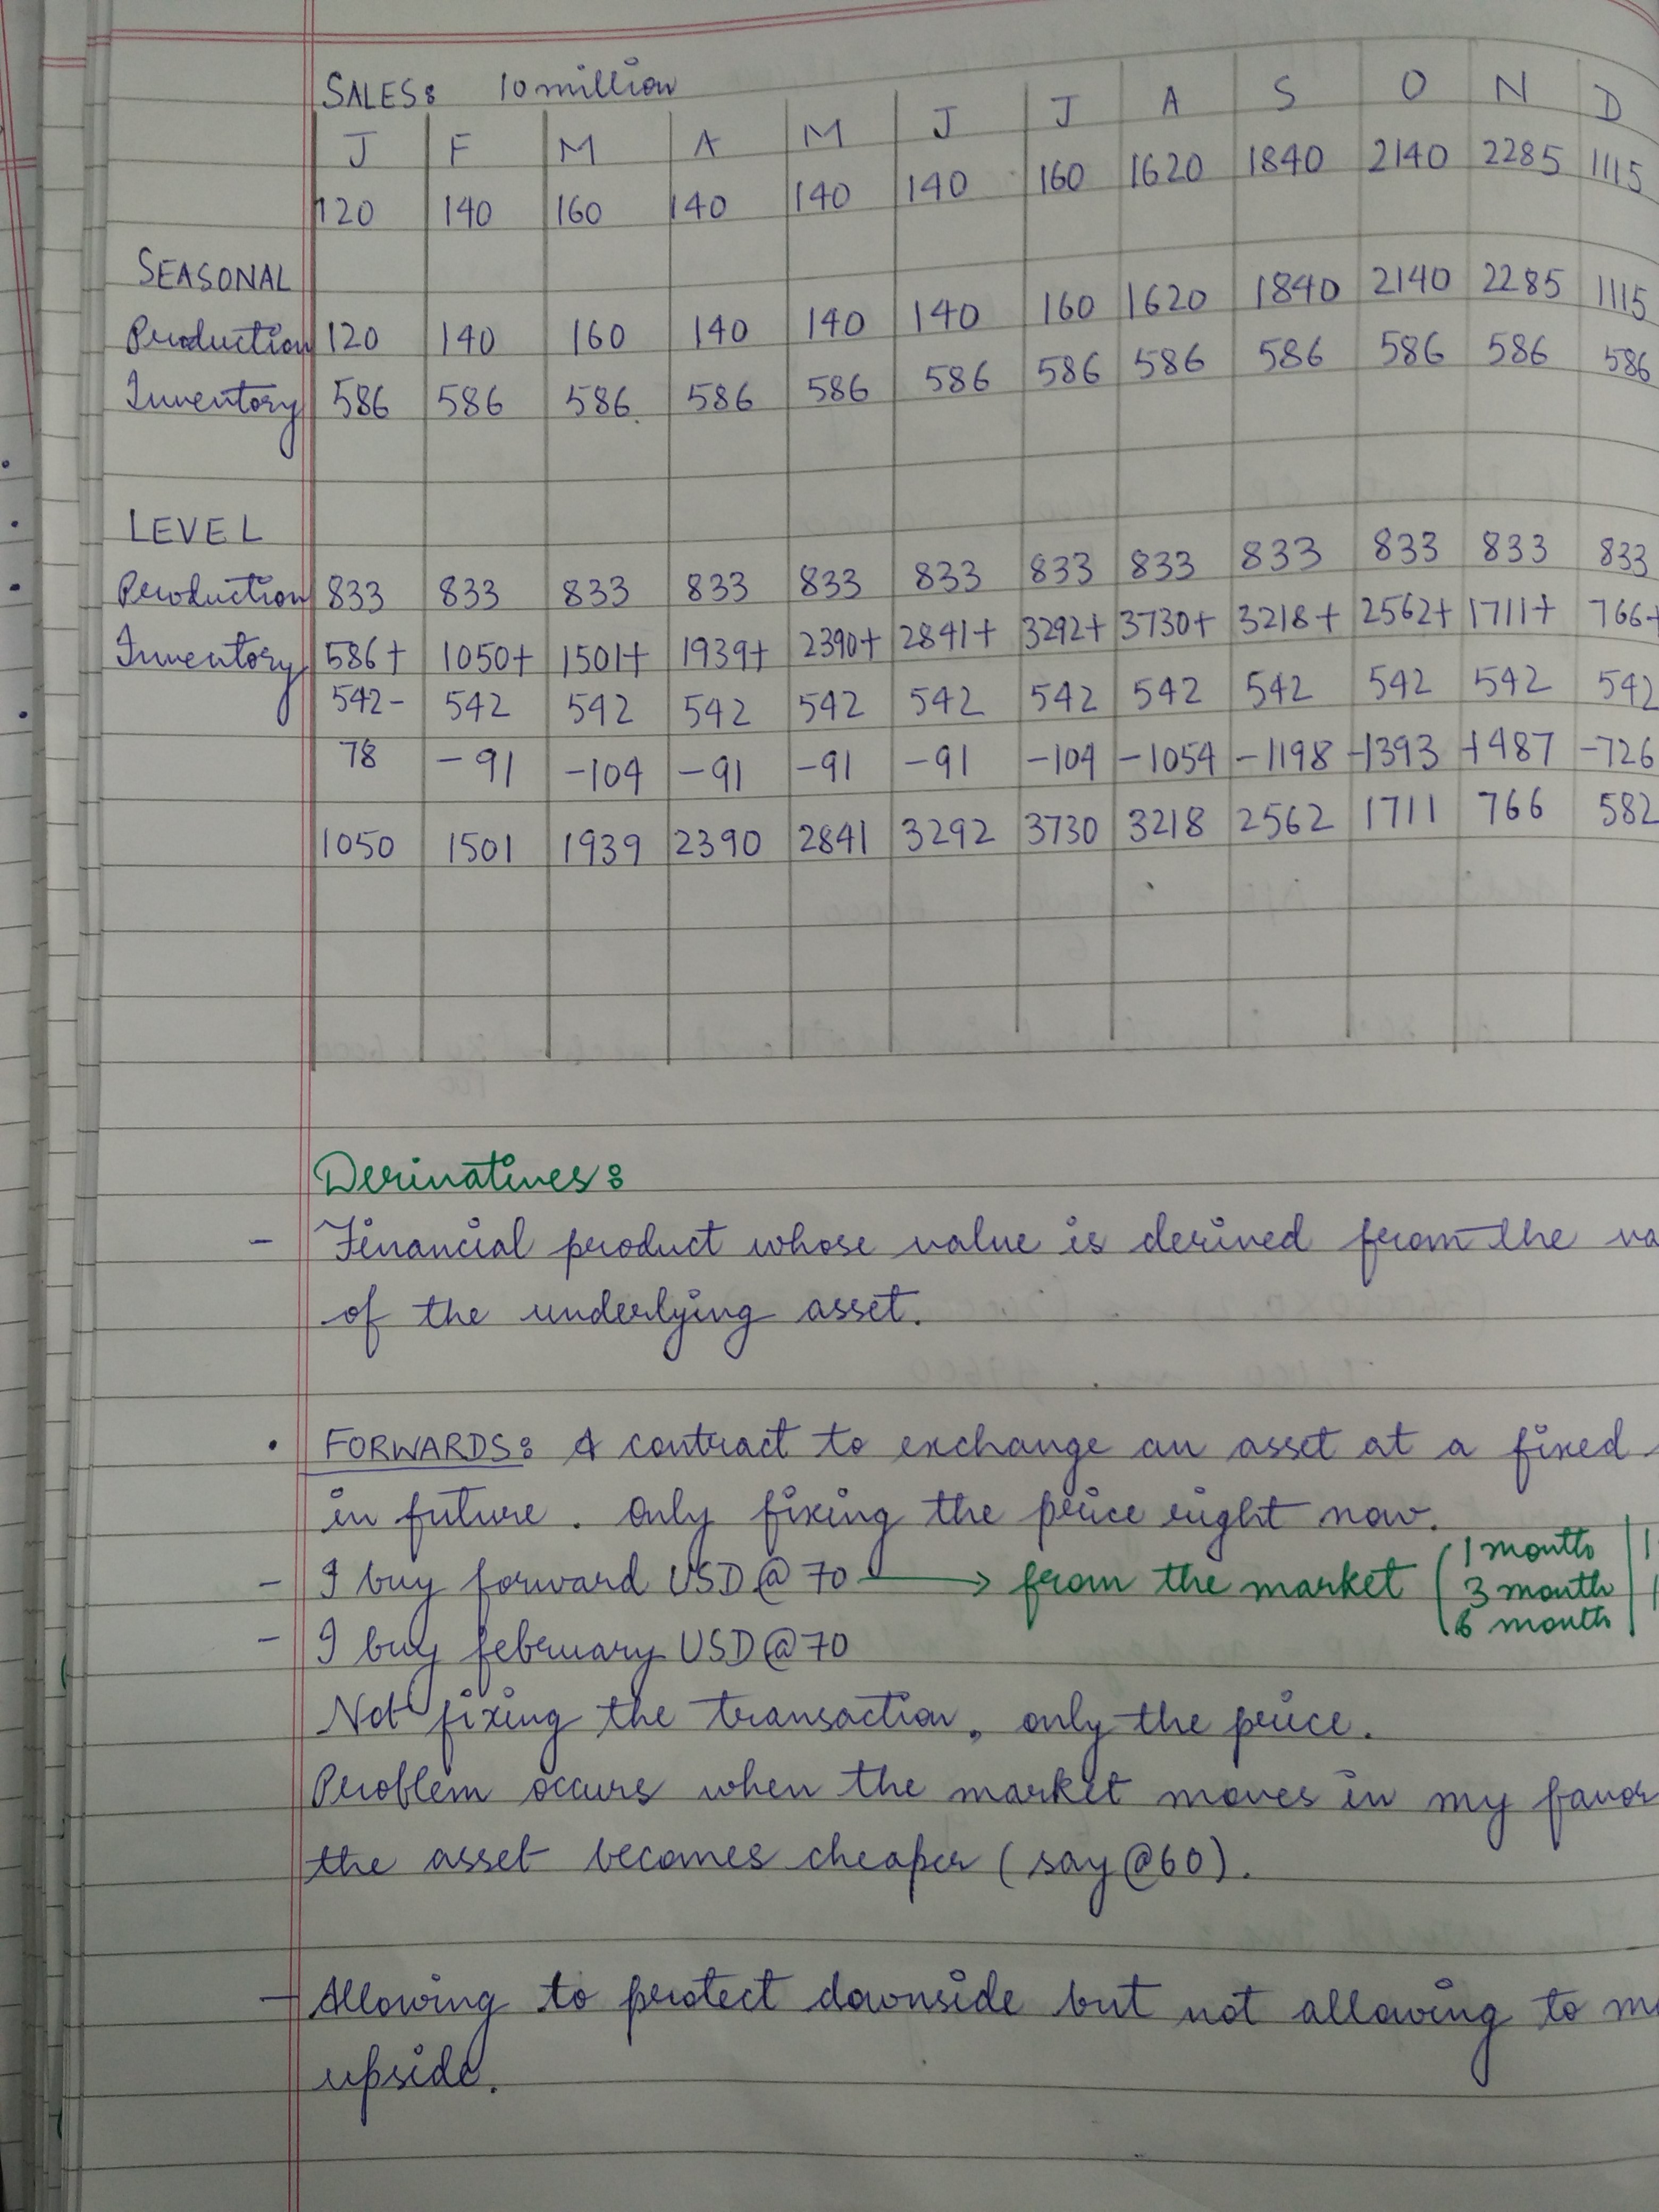 SALES: 10 million
J F M A M J J A S O N D
120 140 160 140 140 140 160 1620 1840 2140 2285 1115
SEASONAL
Production 120 140 160 140 140 140 160 1620 1840 2140 2285 1115
Inventory 586 586 586 586 586 586 586 586 586 586 586 586
LEVEL
Production 833 833 833 833 833 833 833 833 833 833 833 833
Inventory 586+ 1050+ 1501+ 1939+ 2390+ 2841+ 3292+ 3730+ 3218+ 2562+ 1711+ 766+
542- 542 542 542 542 542 542 542 542 542 542 542
78 -91 -104 -91 -91 -91 -104 -1054 -1198 -1393 -1487 -726
1050 1501 1939 2390 2841 3292 3730 3218 2562 1711 766 582
Derivatives:
- Financial product whose value is derived from the
of the underlying asset.
• FORWARDS: A contract to exchange an asset at a fixed
in future. Only fixing the price right now.
- I buy forward USD @ 70 → from the market (1 months
3 month
6 month
- I buy february USD @ 70
Not fixing the transaction, only the price.
Problem occurs when the market moves in my favor
the asset becomes cheaper (say @60).
- Allowing to protect downside but not allowing to
upside.